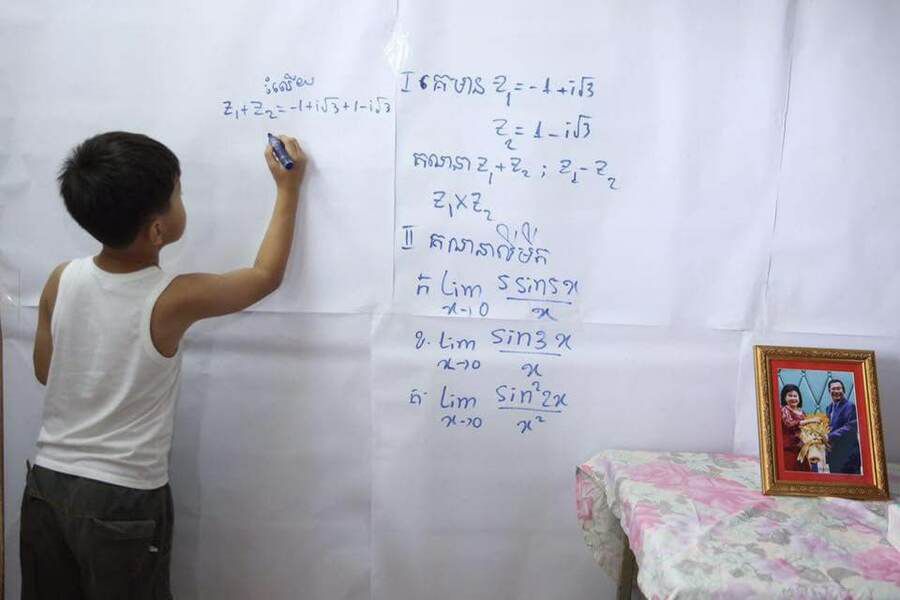 រំលើយ
Z₁+Z₂=-1+i√3+1-i√3
I គេមាន Z₁=-1+i√3
Z₂=1-i√3
គណនា Z₁+Z₂ ; Z₁-Z₂
Z₁×Z₂
II គណនាលីមីត
ក lim x→0 5sin5x/x
ខ. lim x→0 sin3x/x
គ lim x→0 sin²2x/x²